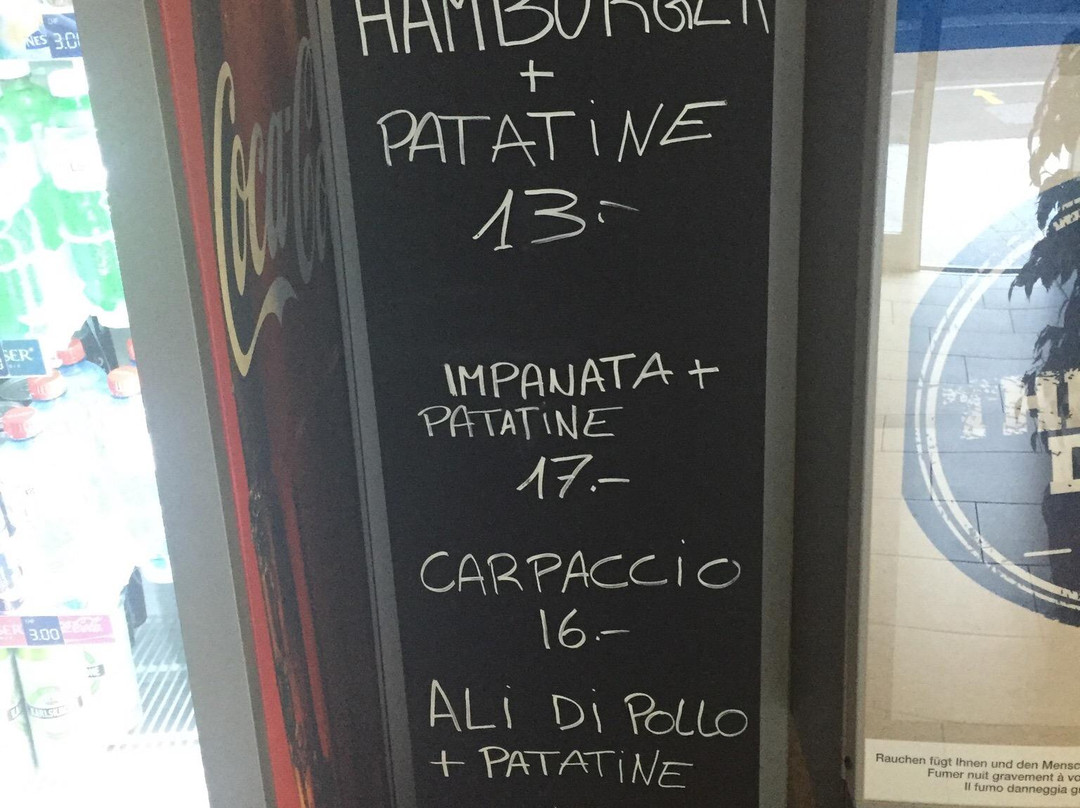 HAMBURGER
+
PATATiNE
13.-
IMPANATA +
PATATiNE
17.-
CARPACCiO
16.-
ALi Di POLLO
+ PATATiNE
Coca-Co
3.0
3.00
Rauchen fügt Ihnen und den Mensc
Fumer nuit gravement à vo
Il fumo danneggia g